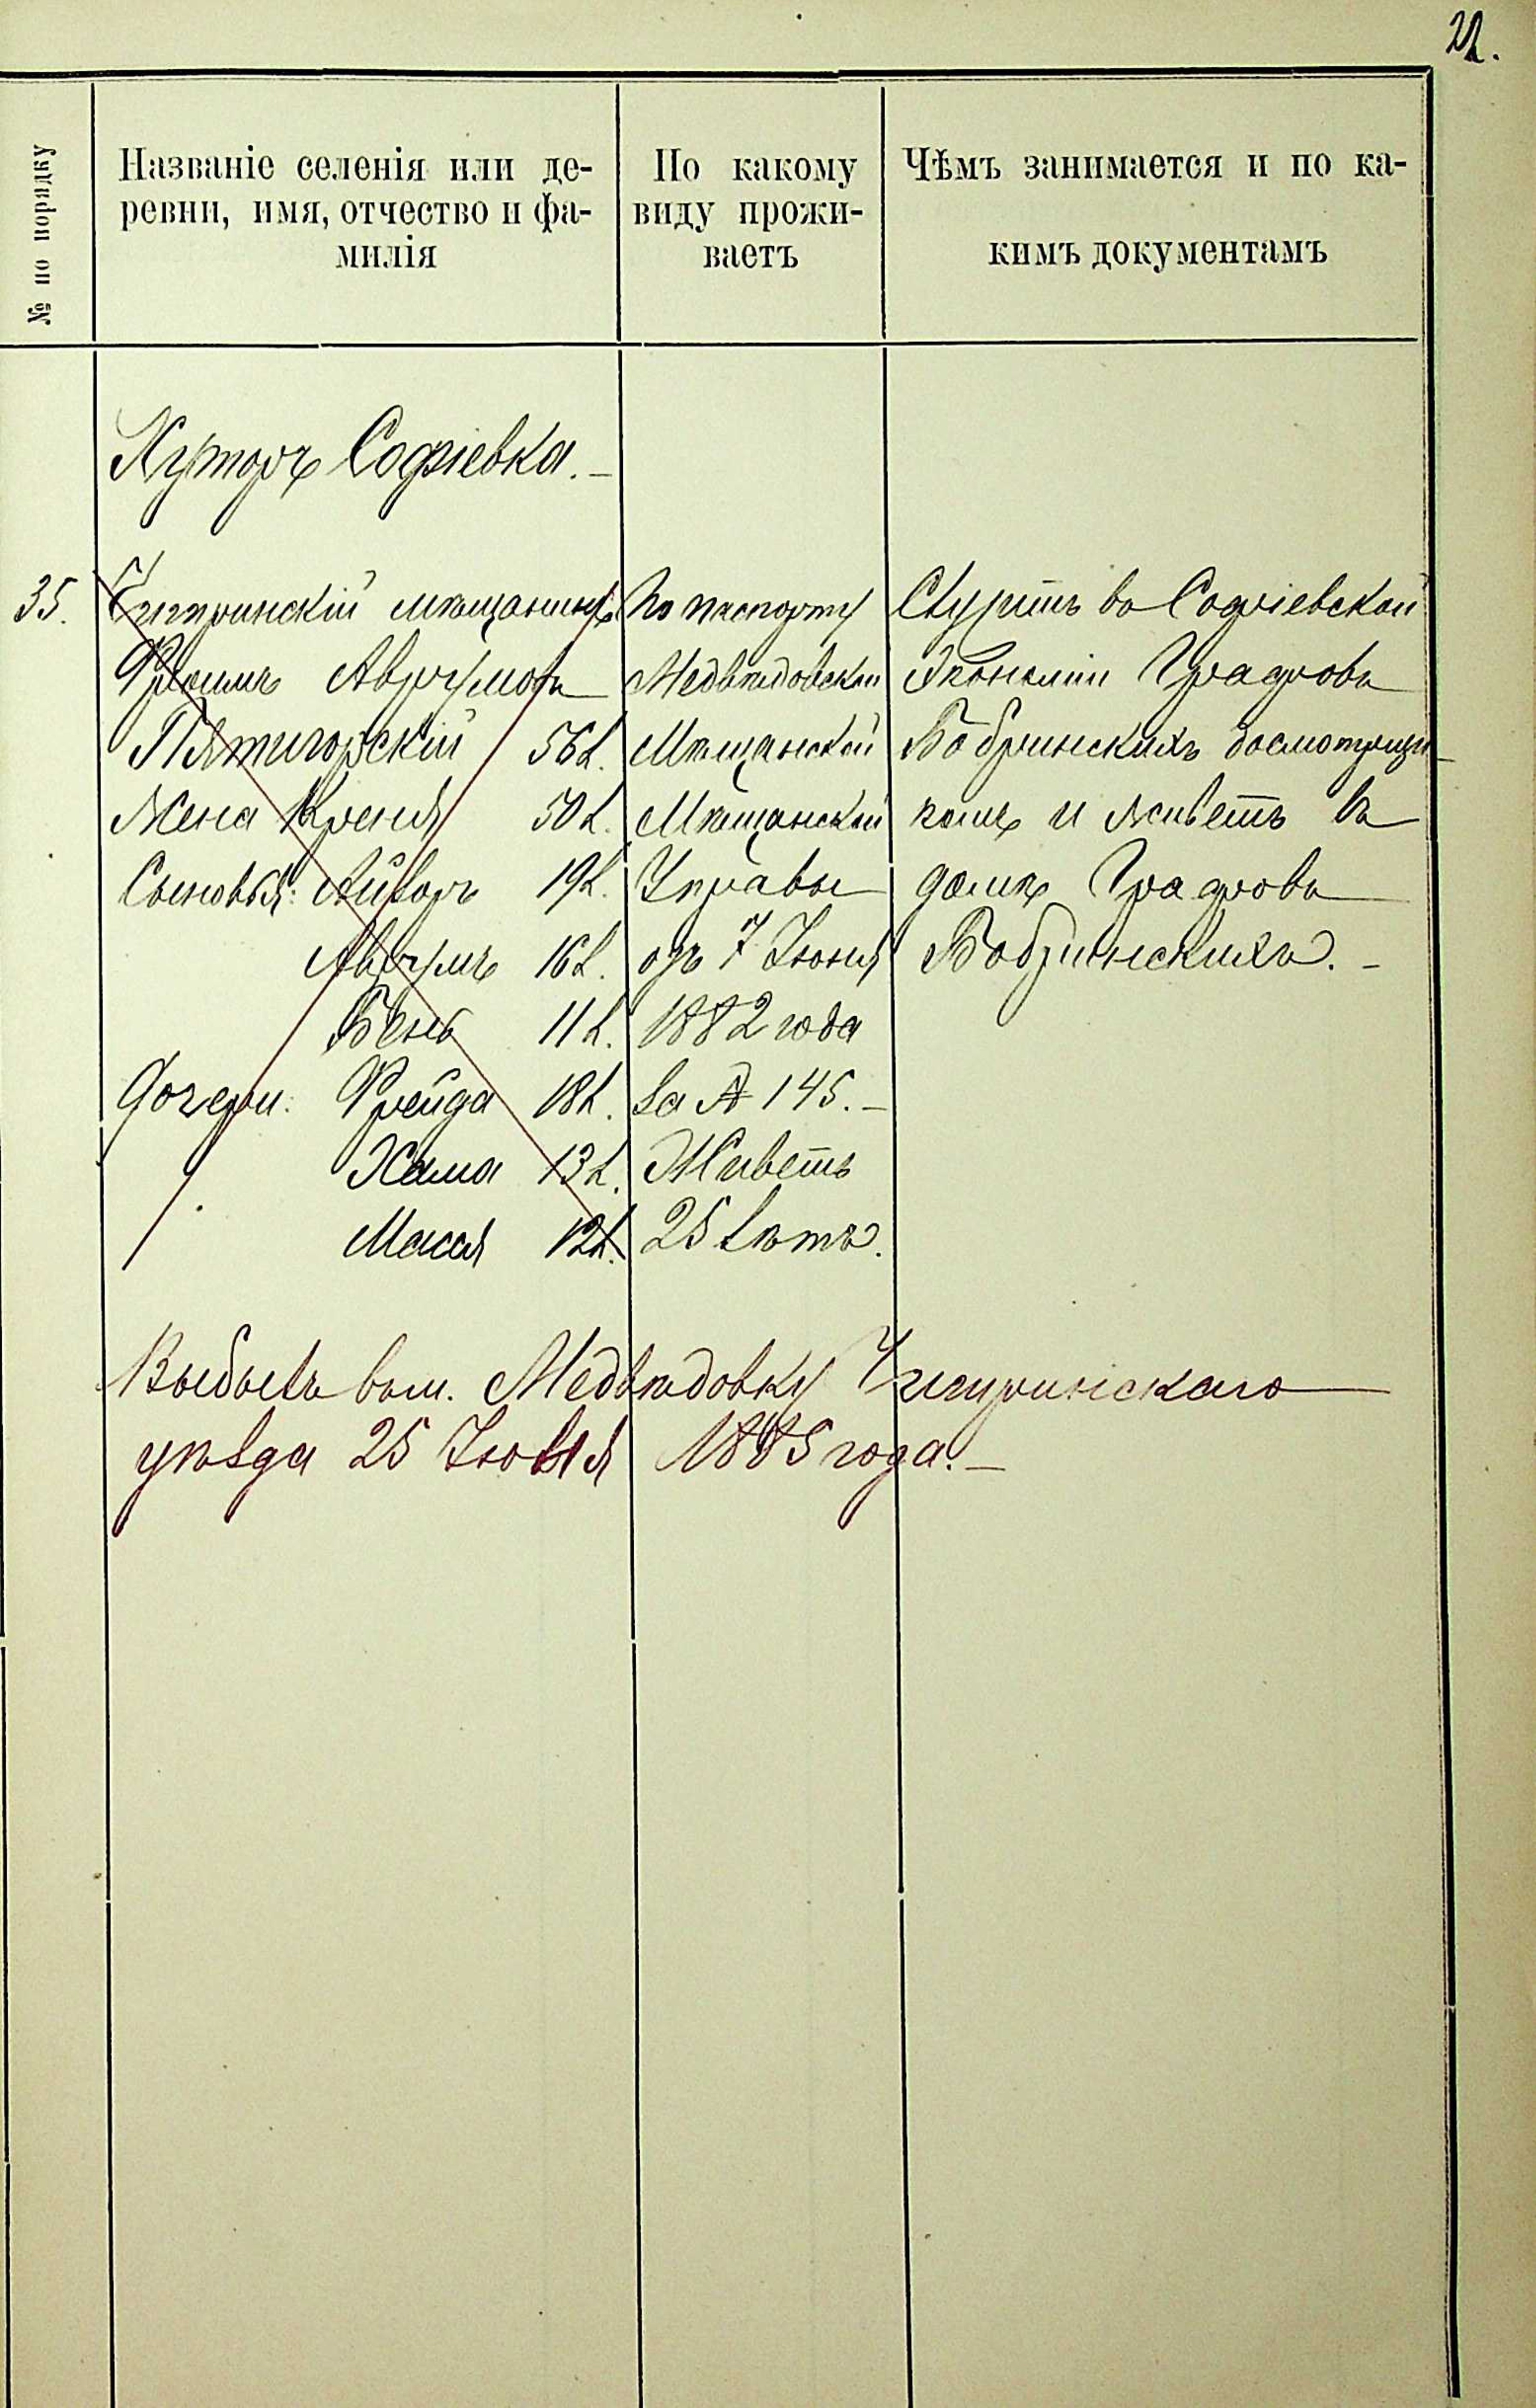 22.
№ по порядку
Названіе селенія или де-
ревни, имя, отчество и фа-
милія
По какому
виду прожи-
ваетъ
Чѣмъ занимается и по ка-
кимъ документамъ
Хуторъ Софіевка.
35.
Чигиринскій мѣщанинъ
Фроимъ Аврумовъ
Пятигорскій 56 л.
Жена Креня 50 л.
Сыновья: Айзоръ 19 л.
Аврумъ 16 л.
Бень 11 л.
Дочери: Фрейда 18 л.
Хама 13 л.
Масся 12 л.
По паспорту
Медвѣдовской
Мѣщанской
Мѣщанской
Управы
отъ 7 Іюня
1882 года
за № 145.
Живетъ
25 лѣтъ.
Служитъ въ Софіевской
Экономіи Графовъ
Бобринскихъ досмотрщи-
комъ и живетъ въ
домѣ Графовъ
Бобринскихъ.
Выбылъ въ м. Медвѣдовку Чигиринскаго
уѣзда 25 Іюля 1885 года.